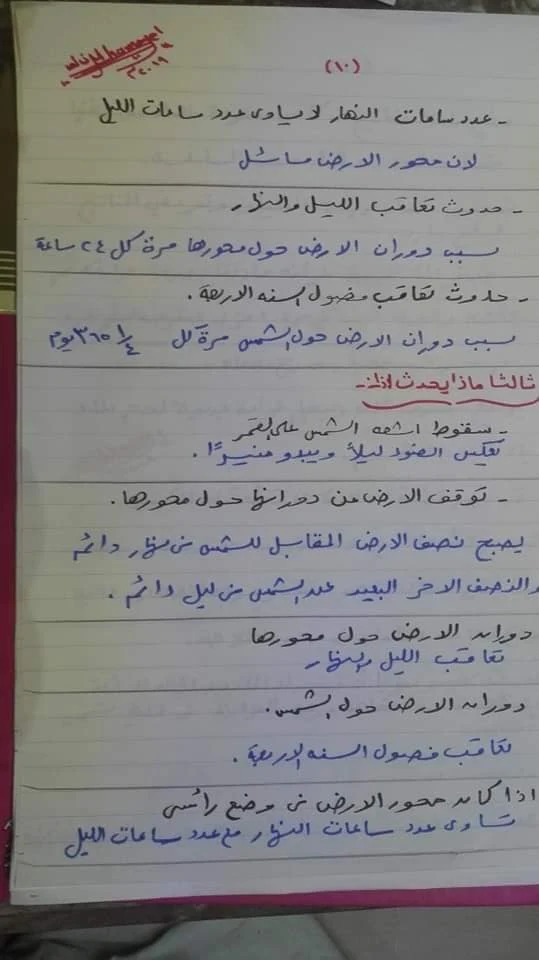 (١٠)
٢٠١٩
- عدد ساعات النهار لا يساوى عدد ساعات الليل
لان محور الارض مائل
- حدوث تعاقب الليل والنهار
بسبب دوران الارض حول محورها مرة كل ٢٤ ساعة
- حدوث تعاقب فصول السنه الاربعة .
بسبب دوران الارض حول الشمس مرة كل ٣٦٥ ١/٤ يوم
ثالثا ماذا يحدث اذا :-
- سقوط اشعه الشمس على القمر
يعكس الضوء ليلاً ويبدو منيرًا .
- توقف الارض عن دورانها حول محورها .
يصبح نصف الارض المقابل للشمس فى نهار دائم
والنصف الاخر البعيد عند الشمس فى ليل دائم .
دوران الارض حول محورها
تعاقب الليل والنهار
دوران الارض حول الشمس .
تعاقب فصول السنه الاربعة .
اذا كان محور الارض فى وضع رأسى
تساوى عدد ساعات النهار مع عدد ساعات الليل